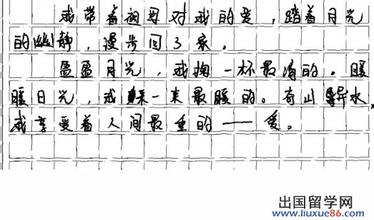 我带着祖母对我的爱，踏着月光
的幽静，漫步回了家。
盈盈月光，我掬一杯最清的。暖
暖日光，我采一束最暖的。奇山异水，
我享受着人间最重的——爱。
出国留学网
www.liuxue86.com